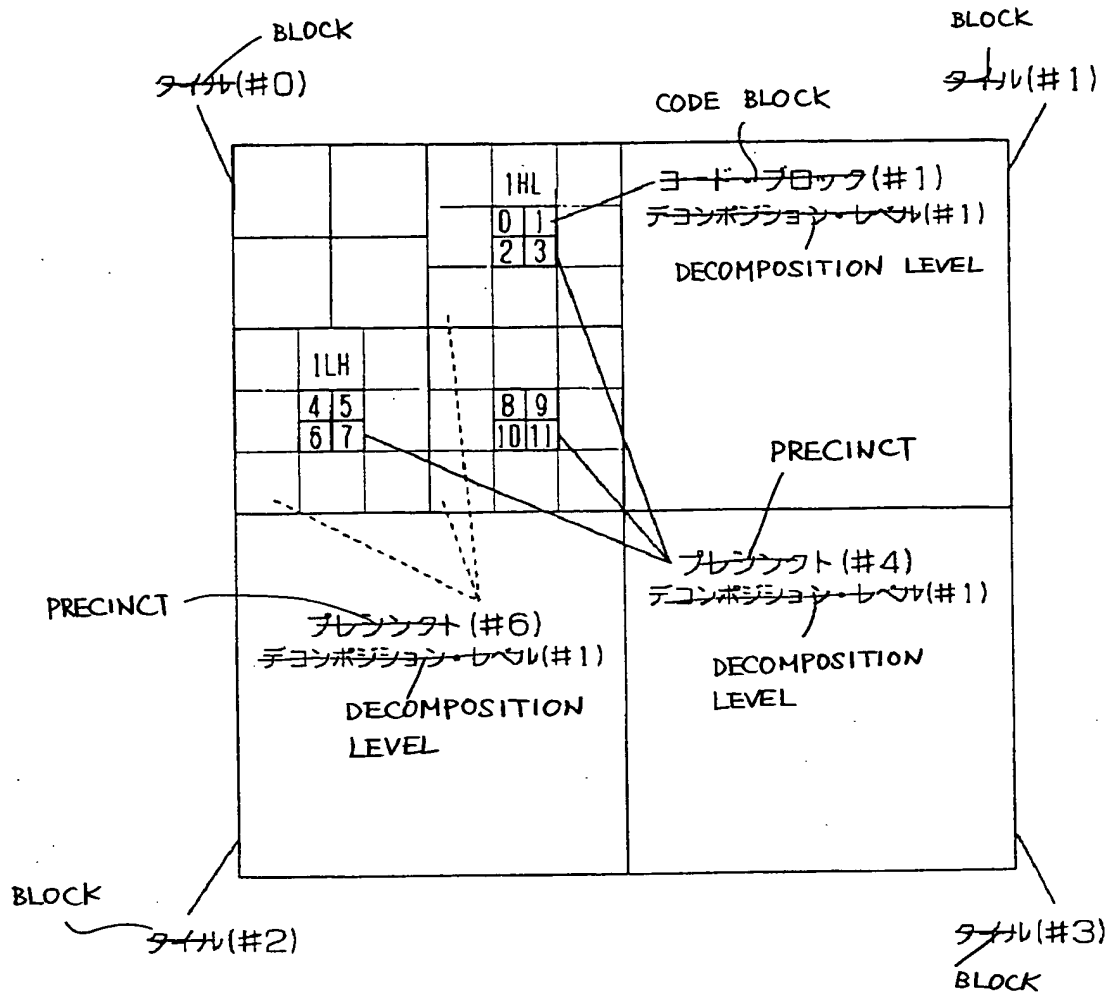 BLOCK
タイル(#0)
BLOCK
タイル(#1)
CODE BLOCK
コード・ブロック(#1)
デコンポジション・レベル(#1)
DECOMPOSITION LEVEL
1HL
0 1
2 3
1LH
4 5
6 7
8 9
10 11
PRECINCT
プレシンクト(#4)
デコンポジション・レベル(#1)
DECOMPOSITION
LEVEL
PRECINCT
プレシンクト(#6)
デコンポジション・レベル(#1)
DECOMPOSITION
LEVEL
BLOCK
タイル(#2)
タイル(#3)
BLOCK